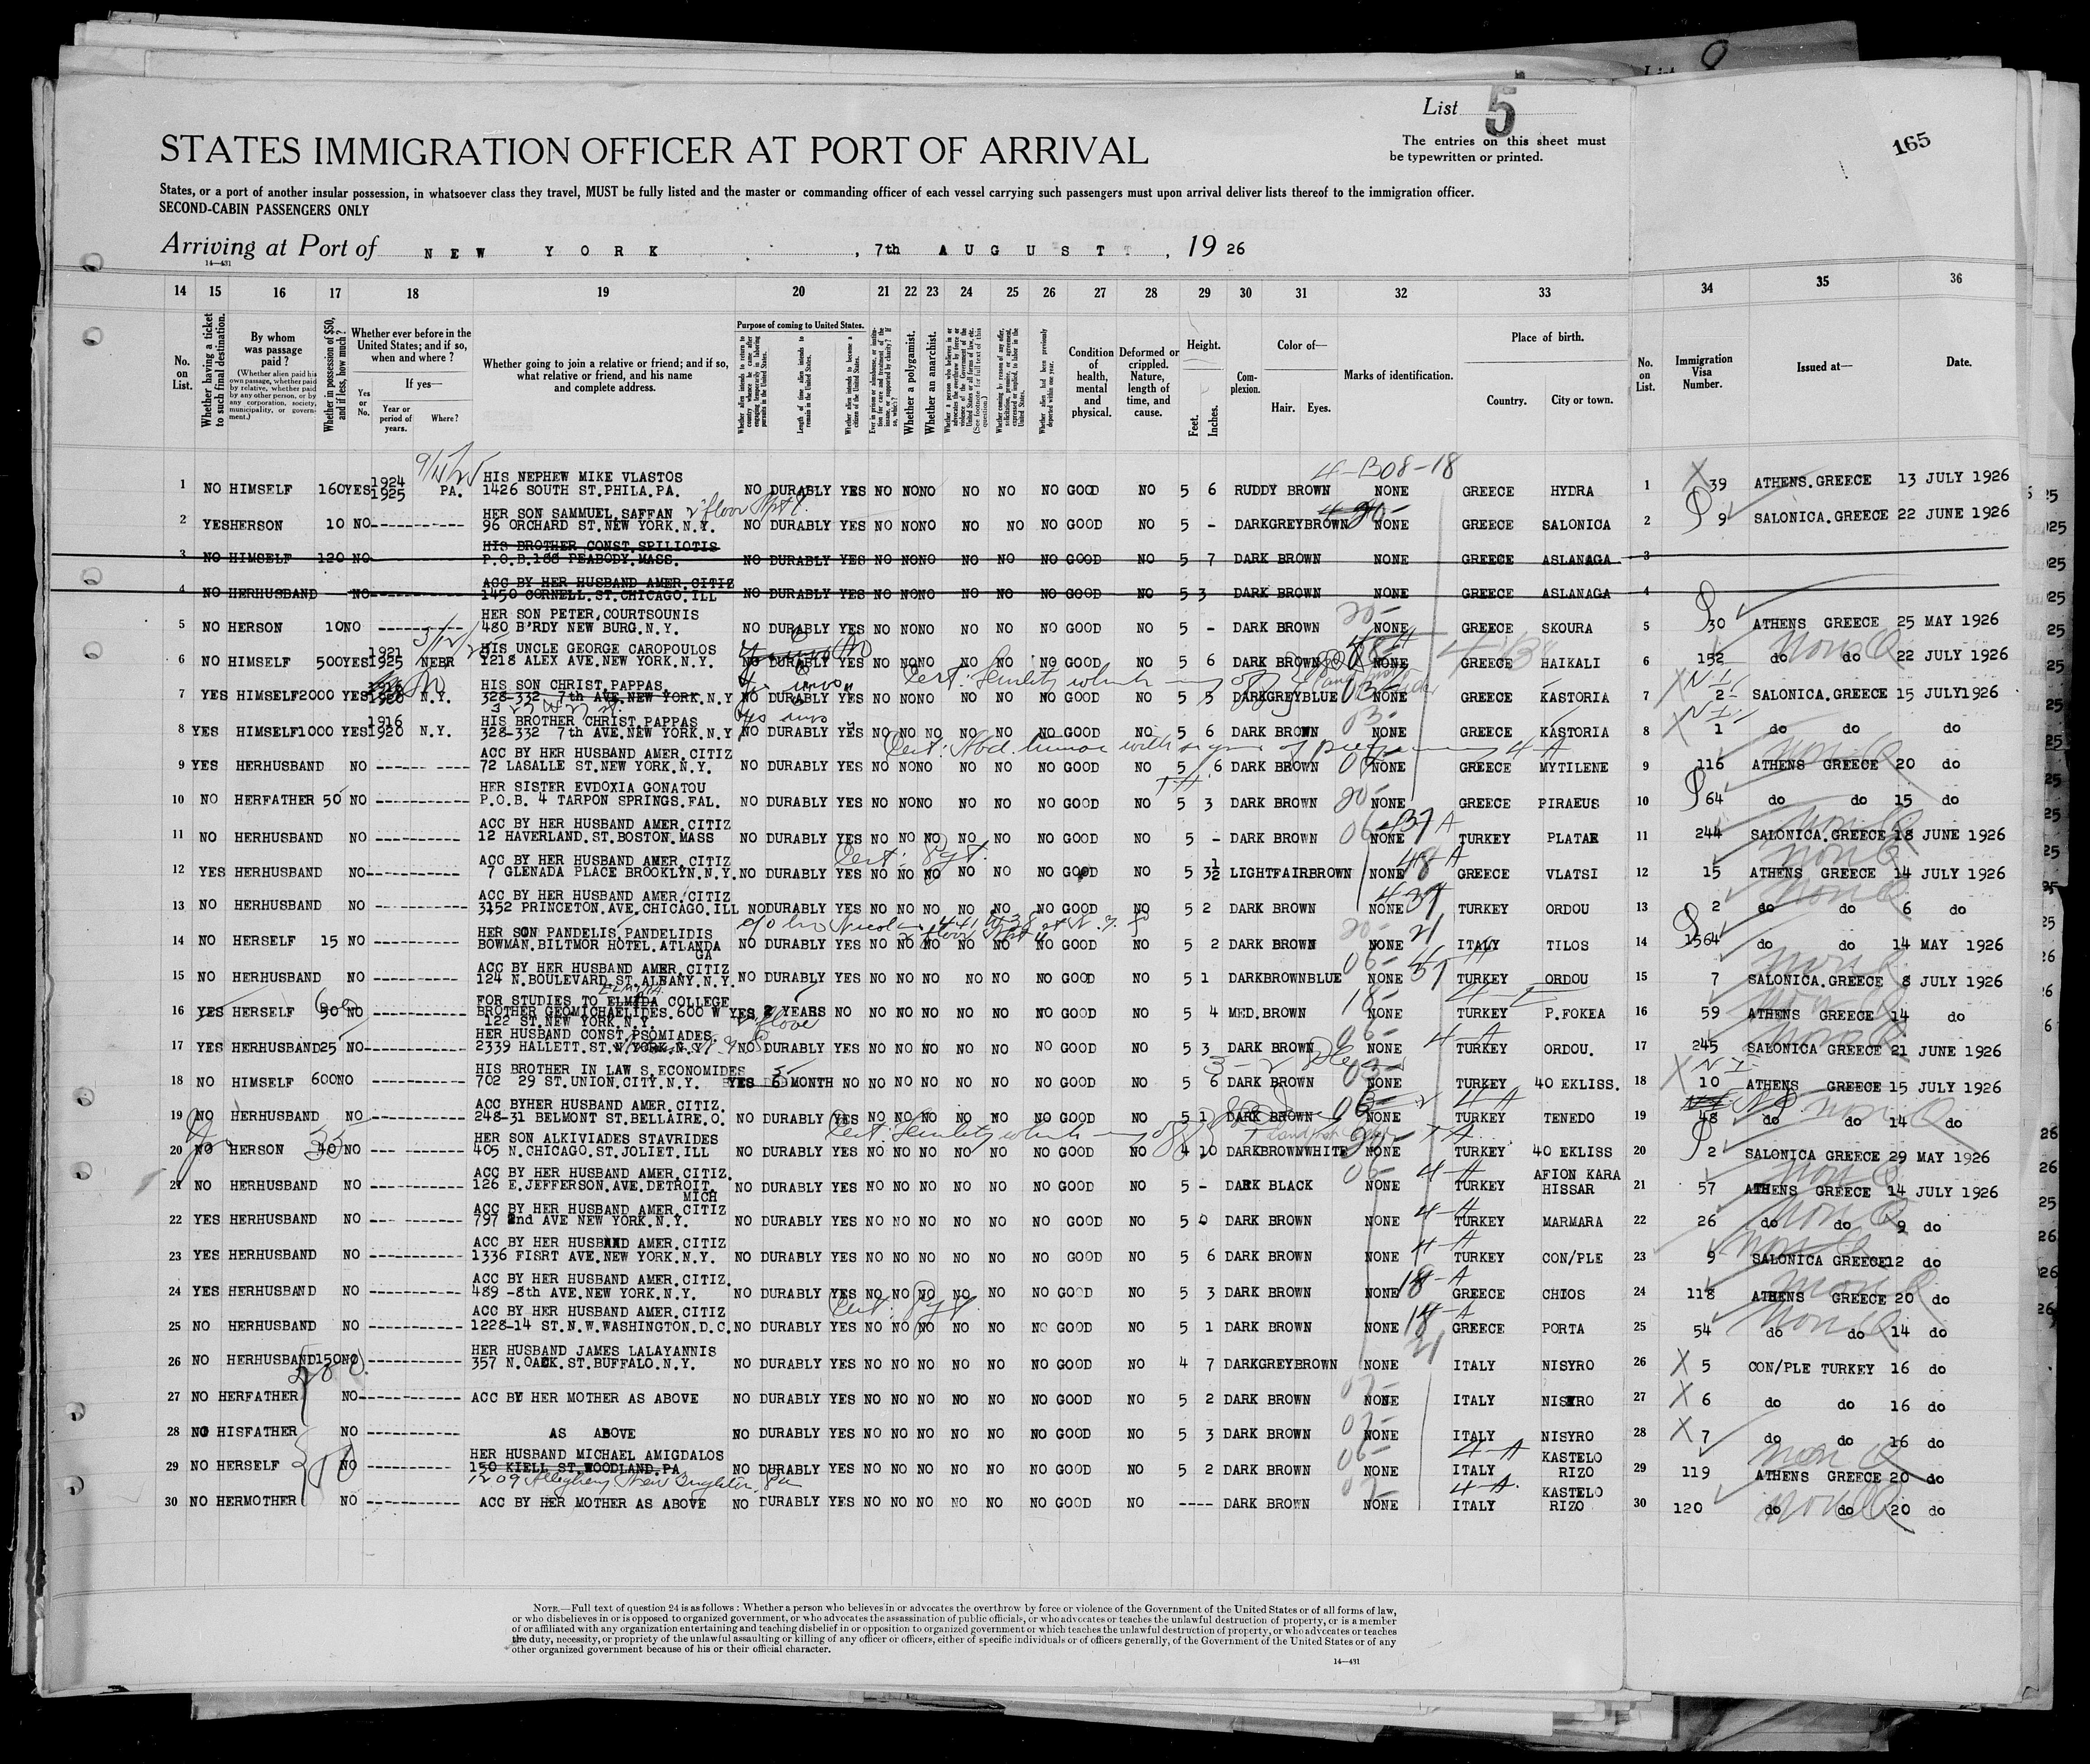 List 5
165
The entries on this sheet must
be typewritten or printed.
STATES IMMIGRATION OFFICER AT PORT OF ARRIVAL
States, or a port of another insular possession, in whatsoever class they travel, MUST be fully listed and the master or commanding officer of each vessel carrying such passengers must upon arrival deliver lists thereof to the immigration officer.
SECOND-CABIN PASSENGERS ONLY
Arriving at Port of NEW YORK, 7th AUGUST, 19 26
14—431
14 15 16 17 18 19 20 21 22 23 24 25 26 27 28 29 30 31 32 33 34 35 36
No. on List.
Whether having a ticket to such final destination.
By whom was passage paid?
(Whether alien paid his own passage, whether paid by relative, whether paid by any other person, or by any corporation, society, municipality, or government.)
Whether in possession of $50, and if less, how much?
Whether ever before in the United States; and if so, when and where?
Yes or No.
If yes—
Year or period of years.
Where?
Whether going to join a relative or friend; and if so, what relative or friend, and his name and complete address.
Purpose of coming to United States.
Length of time alien intends to remain in the United States.
Whether alien intends to become a citizen of the United States.
Whether a polygamist.
Whether an anarchist.
Condition of health, mental and physical.
Deformed or crippled. Nature, length of time, and cause.
Height.
Feet. Inches.
Complexion.
Color of—
Hair. Eyes.
Marks of identification.
Place of birth.
Country. City or town.
No. on List.
Immigration Visa Number.
Issued at—
Date.
HIS NEPHEW MIKE VLASTOS
1 NO HIMSELF 160 YES 1924 1925 PA. 1426 SOUTH ST.PHILA.PA. NO DURABLY YES NO NO NO NO NO NO GOOD NO 5 6 RUDDY BROWN NONE GREECE HYDRA 1 39 ATHENS.GREECE 13 JULY 1926
HER SON SAMMUEL SAFFAN
2 YES HERSON 10 NO 96 ORCHARD ST.NEW YORK.N.Y. NO DURABLY YES NO NO NO NO NO NO GOOD NO 5 - DARK GREY BROWN NONE GREECE SALONICA 2 9 SALONICA.GREECE 22 JUNE 1926
HIS BROTHER CONST.SPILIOTIS
3 NO HIMSELF 120 NO P.O.B.188 PEABODY.MASS. NO DURABLY YES NO NO NO NO NO NO GOOD NO 5 7 DARK BROWN NONE GREECE ASLANAGA 3
ACC BY HER HUSBAND AMER.CITIZ
4 NO HERHUSBAND NO 1450 CORNELL.ST.CHICAGO.ILL NO DURABLY YES NO NO NO NO NO NO GOOD NO 5 3 DARK BROWN NONE GREECE ASLANAGA 4
HER SON PETER.COURTSOUNIS
5 NO HERSON 10 NO 480 B'RDY NEW BURG.N.Y. NO DURABLY YES NO NO NO NO NO NO GOOD NO 5 - DARK BROWN NONE GREECE SKOURA 5 30 ATHENS GREECE 25 MAY 1926
HIS UNCLE GEORGE CAROPOULOS
6 NO HIMSELF 500 YES 1921 1925 NEBR 1218 ALEX AVE.NEW YORK.N.Y. NO DURABLY YES NO NO NO NO NO NO GOOD NO 5 6 DARK BROWN NONE GREECE HAIKALI 6 152 do do 22 JULY 1926
HIS SON CHRIST.PAPPAS
7 YES HIMSELF 2000 YES 1920 N.Y. 328-332 7th AVE.NEW YORK.N.Y NO DURABLY YES NO NO NO NO NO NO GOOD NO 5 5 DARK GREY BLUE NONE GREECE KASTORIA 7 2 SALONICA.GREECE 15 JULY 1926
HIS BROTHER CHRIST.PAPPAS
8 YES HIMSELF 1000 YES 1916 1920 N.Y. 328-332 7th AVE.NEW YORK.N.Y NO DURABLY YES NO NO NO NO NO NO GOOD NO 5 6 DARK BROWN NONE GREECE KASTORIA 8 1 do do do
ACC BY HER HUSBAND AMER.CITIZ
9 YES HERHUSBAND NO 72 LASALLE ST.NEW YORK.N.Y. NO DURABLY YES NO NO NO NO NO NO GOOD NO 5 6 DARK BROWN NONE GREECE MYTILENE 9 116 ATHENS GREECE 20 do
HER SISTER EVDOXIA GONATOU
10 NO HERFATHER 50 NO P.O.B. 4 TARPON SPRINGS.FAL. NO DURABLY YES NO NO NO NO NO NO GOOD NO 5 3 DARK BROWN NONE GREECE PIRAEUS 10 64 do do 15 do
ACC BY HER HUSBAND AMER.CITIZ
11 NO HERHUSBAND NO 12 HAVERLAND.ST.BOSTON.MASS NO DURABLY YES NO NO NO NO NO NO GOOD NO 5 - DARK BROWN NONE TURKEY PLATAR 11 244 SALONICA.GREECE 18 JUNE 1926
ACC BY HER HUSBAND AMER.CITIZ
12 YES HERHUSBAND NO 7 GLENADA PLACE BROOKLYN.N.Y. NO DURABLY YES NO NO NO NO NO NO GOOD NO 5 3½ LIGHT FAIR BROWN NONE GREECE VLATSI 12 15 ATHENS GREECE 14 JULY 1926
ACC BY HER HUSBAND AMER.CITIZ
13 NO HERHUSBAND NO 3152 PRINCETON.AVE.CHICAGO.ILL NO DURABLY YES NO NO NO NO NO NO GOOD NO 5 2 DARK BROWN NONE TURKEY ORDOU 13 2 do do 6 do
HER SON PANDELIS PANDELIDIS
14 NO HERSELF 15 NO BOWMAN.BILTMOR HOTEL.ATLANDA GA NO DURABLY YES NO NO NO NO NO NO GOOD NO 5 2 DARK BROWN NONE ITALY TILOS 14 1564 do do 14 MAY 1926
ACC BY HER HUSBAND AMER.CITIZ
15 NO HERHUSBAND NO 124 N.BOULEVARD.ST.ALBANY.N.Y. NO DURABLY YES NO NO NO NO NO NO GOOD NO 5 1 DARK BROWN BLUE NONE TURKEY ORDOU 15 7 SALONICA.GREECE 8 JULY 1926
FOR STUDIES TO ELMIDA COLLEGE
16 YES HERSELF 50 NO BROTHER GEOMICHAELIDES.600 W YES 2 YEARS NO NO NO NO NO NO NO GOOD NO 5 4 MED.BROWN NONE TURKEY P.FOKEA 16 59 ATHENS GREECE 14 do
122 ST.NEW YORK.N.Y.
HER HUSBAND CONST.PSOMIADES
17 YES HERHUSBAND 25 NO 2339 HALLETT.ST.N.YORK.N.Y NO DURABLY YES NO NO NO NO NO NO GOOD NO 5 3 DARK BROWN NONE TURKEY ORDOU. 17 245 SALONICA GREECE 21 JUNE 1926
HIS BROTHER IN LAW S.ECONOMIDES
18 NO HIMSELF 600 NO 702 29 ST.UNION.CITY.N.Y. YES 6 MONTH NO NO NO NO NO NO NO GOOD NO 5 6 DARK BROWN NONE TURKEY 40 EKLISS. 18 10 ATHENS GREECE 15 JULY 1926
ACC BYHER HUSBAND AMER.CITIZ.
19 NO HERHUSBAND NO 248-31 BELMONT ST.BELLAIRE.O. NO DURABLY YES NO NO NO NO NO NO GOOD NO 5 1 DARK BROWN NONE TURKEY TENEDO 19 48 do do 14 do
HER SON ALKIVIADES STAVRIDES
20 NO HERSON 40 NO 405 N.CHICAGO.ST.JOLIET.ILL NO DURABLY YES NO NO NO NO NO NO GOOD NO 4 10 DARK BROWN WHITE NONE TURKEY 40 EKLISS 20 2 SALONICA GREECE 29 MAY 1926
ACC BY HER HUSBAND AMER.CITIZ.
21 NO HERHUSBAND NO 126 E.JEFFERSON.AVE.DETROIT. MICH NO DURABLY YES NO NO NO NO NO NO GOOD NO 5 - DARK BLACK NONE TURKEY AFION KARA HISSAR 21 57 ATHENS GREECE 14 JULY 1926
ACC BY HER HUSBAND AMER.CITIZ
22 YES HERHUSBAND NO 797 2nd AVE NEW YORK.N.Y. NO DURABLY YES NO NO NO NO NO NO GOOD NO 5 0 DARK BROWN NONE TURKEY MARMARA 22 26 do do 9 do
ACC BY HER HUSBAND AMER.CITIZ
23 YES HERHUSBAND NO 1336 FISRT AVE.NEW YORK.N.Y. NO DURABLY YES NO NO NO NO NO NO GOOD NO 5 6 DARK BROWN NONE TURKEY CON/PLE 23 9 SALONICA GREECE 12 do
ACC BY HER HUSBAND AMER.CITIZ.
24 YES HERHUSBAND NO 489 -8th AVE.NEW YORK.N.Y. NO DURABLY YES NO NO NO NO NO NO GOOD NO 5 3 DARK BROWN NONE GREECE CHIOS 24 118 ATHENS GREECE 20 do
ACC BY HER HUSBAND AMER.CITIZ
25 NO HERHUSBAND NO 1228-14 ST.N.W.WASHINGTON.D.C. NO DURABLY YES NO NO NO NO NO NO GOOD NO 5 1 DARK BROWN NONE GREECE PORTA 25 54 do do 14 do
HER HUSBAND JAMES LALAYANNIS
26 NO HERHUSBAND 150 NO 357 N.OACK.ST.BUFFALO.N.Y. NO DURABLY YES NO NO NO NO NO NO GOOD NO 4 7 DARK GREY BROWN NONE ITALY NISYRO 26 5 CON/PLE TURKEY 16 do
27 NO HERFATHER NO ACC BY HER MOTHER AS ABOVE NO DURABLY YES NO NO NO NO NO NO GOOD NO 5 2 DARK BROWN NONE ITALY NISYRO 27 6 do do 16 do
28 NO HISFATHER NO AS ABOVE NO DURABLY YES NO NO NO NO NO NO GOOD NO 5 3 DARK BROWN NONE ITALY NISYRO 28 7 do do 16 do
HER HUSBAND MICHAEL AMIGDALOS
29 NO HERSELF NO 150 KIELL ST.WOODLAND.PA NO DURABLY YES NO NO NO NO NO NO GOOD NO 5 2 DARK BROWN NONE ITALY KASTELO RIZO 29 119 ATHENS GREECE 20 do
1209 Allegheny New Brighton, Pa
30 NO HERMOTHER NO ACC BY HER MOTHER AS ABOVE NO DURABLY YES NO NO NO NO NO NO GOOD NO ---- DARK BROWN NONE ITALY KASTELO RIZO 30 120 do do 20 do
NOTE.—Full text of question 24 is as follows: Whether a person who believes in or advocates the overthrow by force or violence of the Government of the United States or of all forms of law,
or who disbelieves in or is opposed to organized government, or who advocates the assassination of public officials, or who advocates or teaches the unlawful destruction of property, or is a member
of or affiliated with any organization entertaining and teaching disbelief in or opposition to organized government or which teaches the unlawful destruction of property, or who advocates or teaches
the duty, necessity, or propriety of the unlawful assaulting or killing of any officer or officers, either of specific individuals or of officers generally, of the Government of the United States or of any
other organized government because of his or their official character.
14—431